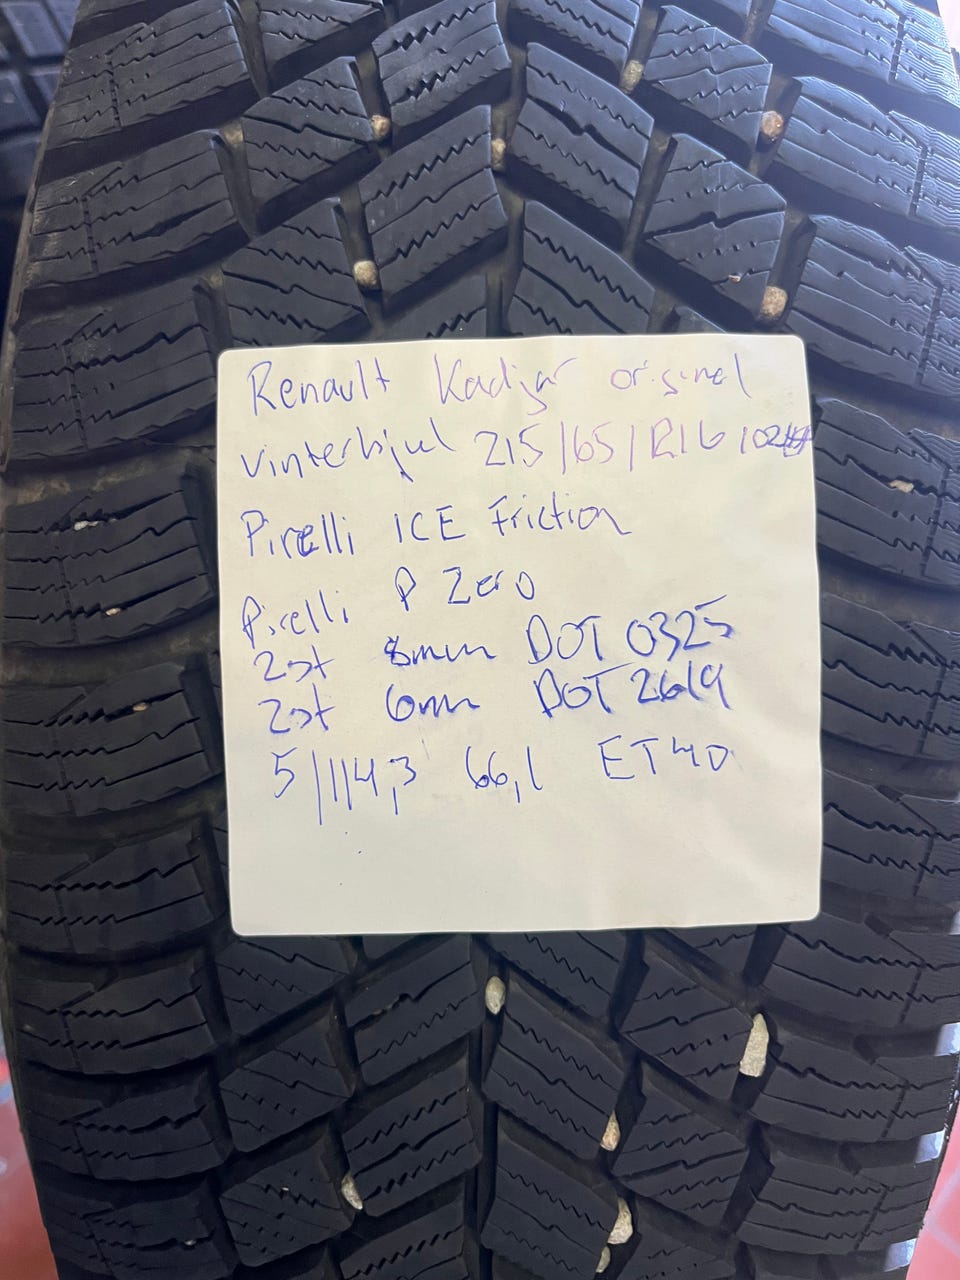 Renault Kadjar original
vinterhjul 215/65/R16 102
Pirelli ICE Friction
Pirelli P Zero
2st 8mm DOT 0325
2st 6mm DOT 2619
5/114,3 66,1 ET40